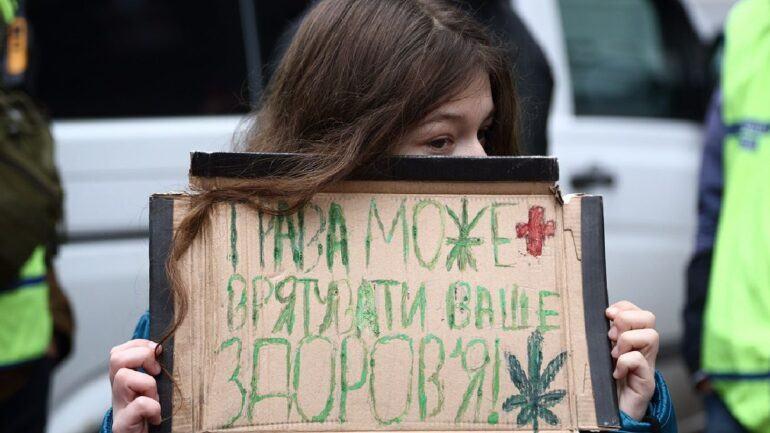 ТРАВА МОЖЕ
ВРЯТУВАТИ ВАШЕ
ЗДОРОВ'Я!